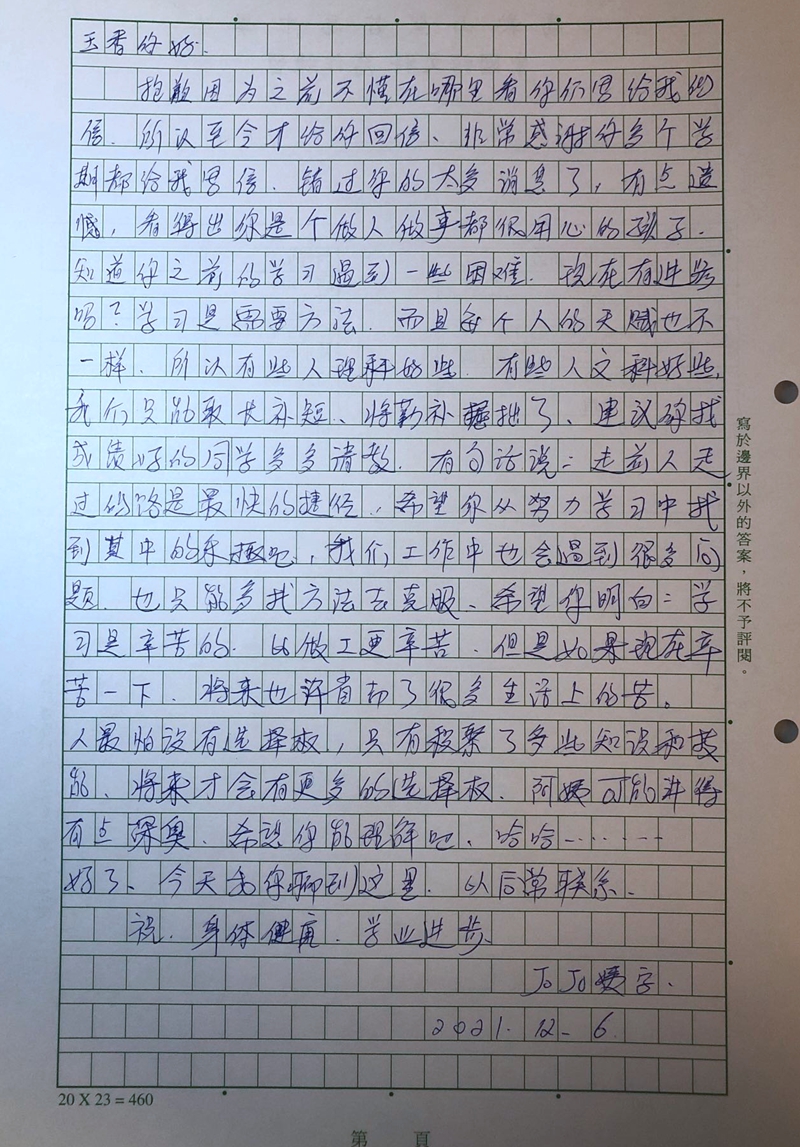 玉香你好.
抱歉因为之前不懂在哪里看你们写给我的
信.所以至今才给你回信、非常感谢你多个学
期都给我写信.错过你的太多消息了,有点遗
憾,看得出你是个做人做事都很用心的孩子.
知道你之前的学习遇到一些困难.现在有进步
吗?学习是需要方法.而且每个人的天赋也不
一样、所以有些人理科好些.有些人文科好些,
我们只能取长补短、将勤补拙了、建议你找
成绩好的同学多多请教.有句话说:走前人走
过的路是最快的捷径,希望你从努力学习中找
到其中的乐趣吧,我们工作中也会遇到很多问
题.也只能多找方法去克服、希望你明白:学
习是辛苦的.以做工更辛苦.但是如果现在辛
苦一下.将来也许省却了很多生活上的苦。
人最怕没有选择权,只有积聚了多些知识和技
能、将来才会有更多的选择权.阿姨可能讲得
有点深奥.希望你能理解吧、哈哈……
好了、今天和你聊到这里.以后常联系.
祝.身体健康.学业进步
JoJo姨字.
2021.12-6.
寫於邊界以外的答案,將不予評閱。
20 X 23 = 460
第 頁